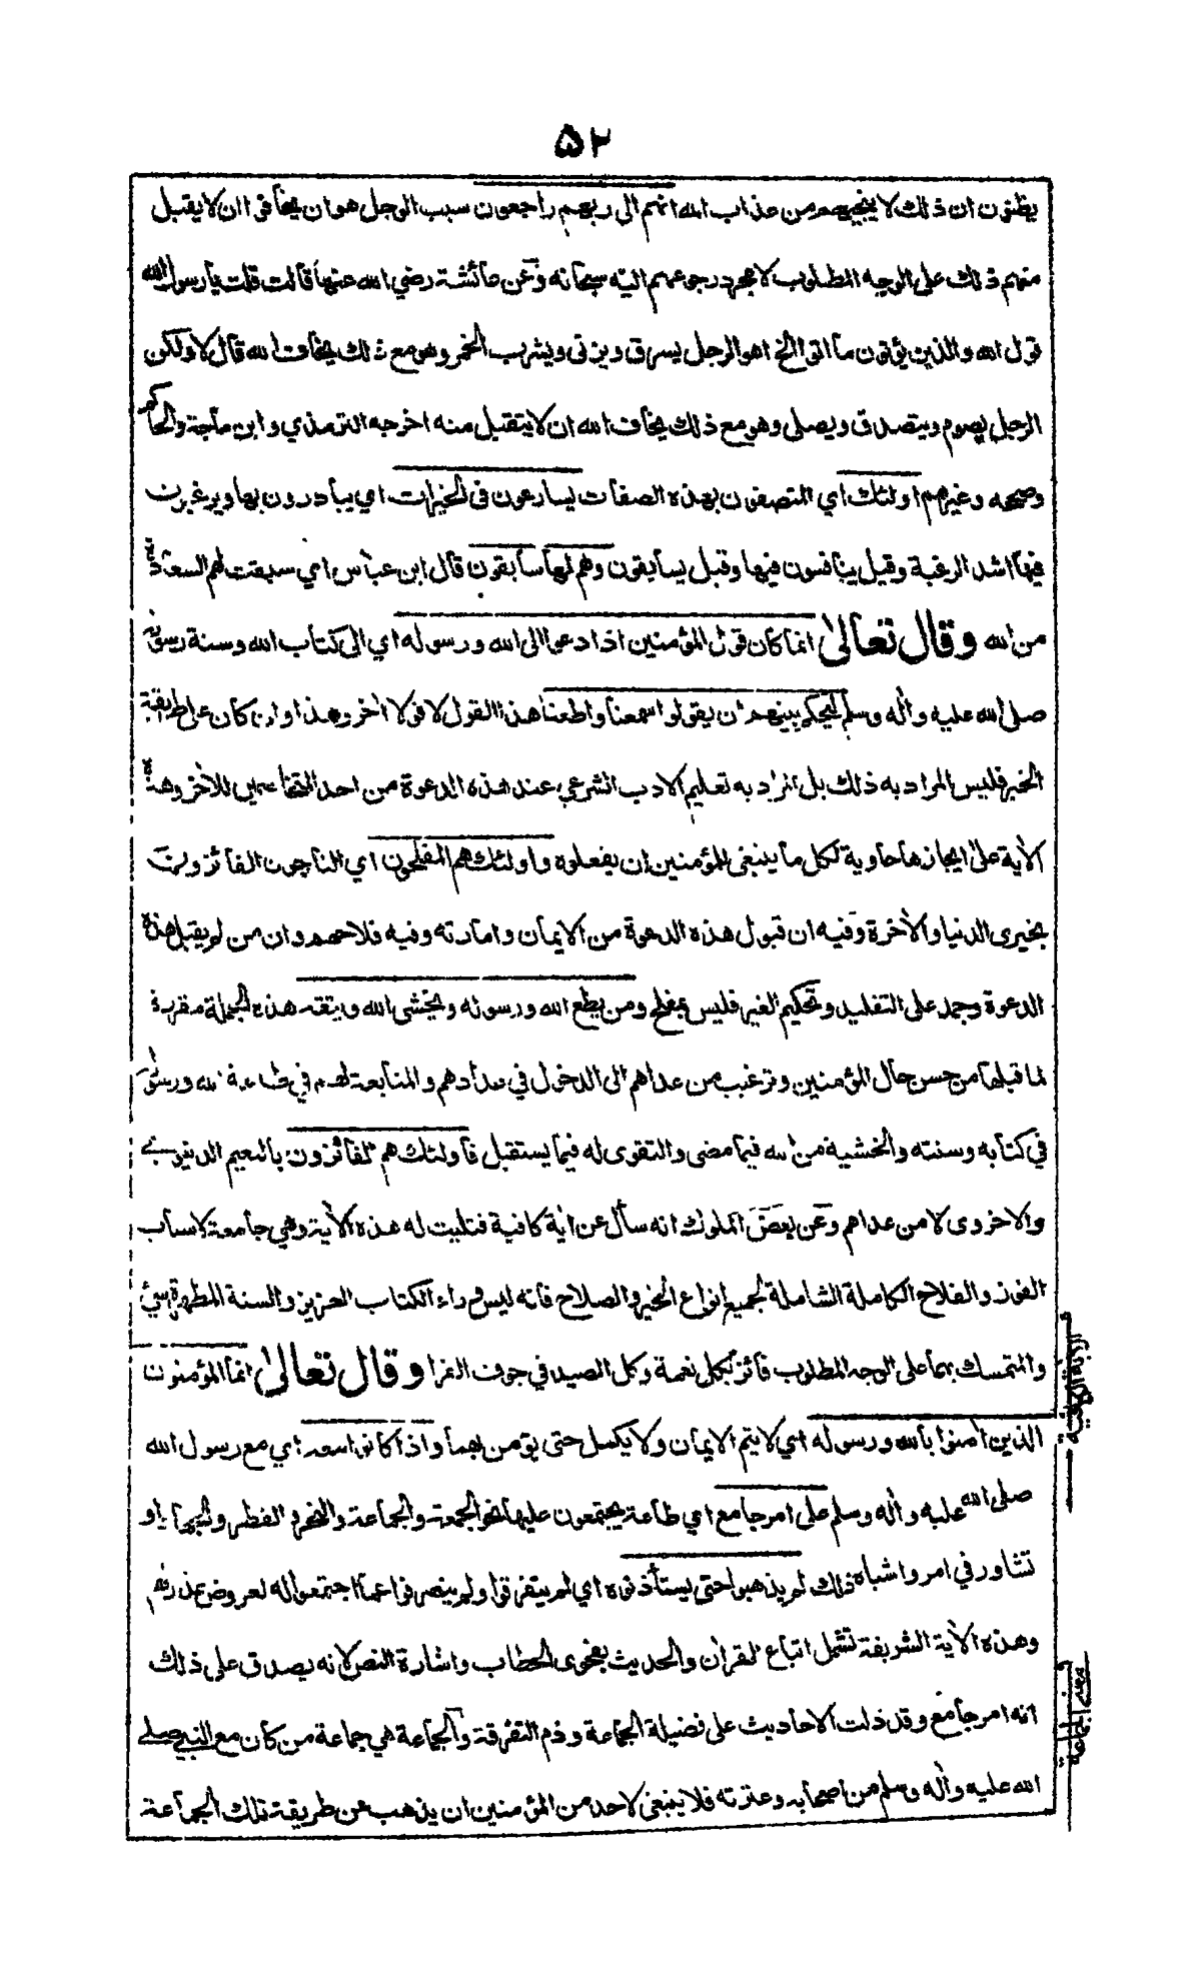 ۵۲
يظنون ان ذلك لا ينجيهم من عذاب الله انهم الى ربهم راجعون سبب الوجل هو ان يخافوا ان لا يقبل
منهم ذلك على الوجه المطلوب لا مجرد رجوعهم اليه سبحانه وعن عائشة رضي الله عنها قالت قلت يا رسول الله
قول الله والذين يؤتون ما اتوا الخ اهو الرجل يسرق ويزني ويشرب الخمر وهو مع ذلك يخاف الله قال لا ولكن
الرجل يصوم ويتصدق ويصلى وهو مع ذلك يخاف الله ان لا يتقبل منه اخرجه الترمذي وابن ماجة والحاكم
وصححه وغيرهم اولئك اي المتصفون بهذه الصفات يسارعون فى الخيرات اي يبادرون بها ويرغبون
فيها اشد الرغبة وقيل ينافسون فيها وقيل يسابقون وهم لها سابقون قال ابن عباس اي سبقت لهم السعادة
من الله وقال تعالى انما كان قول المؤمنين اذا دعوا الى الله ورسوله اي الى كتاب الله وسنة رسوله
صلى الله عليه واله وسلم ليحكم بينهم ان يقولوا سمعنا واطعنا هذا القول لا قولا اخر وهذا وان كان على طريقة
الخبر فليس المراد به ذلك بل المراد به تعليم الادب الشرعي عند هذه الدعوة من احد المتخاصمين للاخر وهذة
الاية على ايجازها حاوية لكل ما ينبغى للمؤمنين ان يفعلوه واولئك هم المفلحون اي الناجون الفائزون
بخيرى الدنيا والاخرة وفيه ان قبول هذه الدعوة من الايمان وامارته وفيه فلاحهم وان من لم يقبل هذه
الدعوة وجمد على التقليد وتحكيم الغير فليس بمفلح ومن يطع الله ورسوله ويخشى الله ويتقه هذه الجملة مقررة
لما قبلها من حسن حال المؤمنين وترغيب من عداهم الى الدخول في عدادهم والمتابعة لهم في طاعة الله ورسوله
في كتابه وسنته والخشية من الله فيما مضى والتقوى له فيما يستقبل فاولئك هم الفائزون بالنعيم الدنيوي
والاخروى لا من عداهم وعن بعض الملوك انه سأل عن اية كافية فتليت له هذه الاية وهي جامعة لاسباب
الفوز والفلاح الكاملة الشاملة لجميع انواع الخير والصلاح فانه ليس وراء الكتاب العزيز والسنة المطهرة شئ
والمتمسك بهما على الوجه المطلوب فائز بكل نعمة وكل الصيد في جوف الفرا وقال تعالى انما المؤمنون
الذين امنوا بالله ورسوله اي لا يتم الايمان ولا يكمل حتى يؤمن بهما واذا كانوا معه اي مع رسول الله
صلى الله عليه واله وسلم على امر جامع اي طاعة يجتمعون عليها نحو الجمعة والجماعة والنحر والفطر والجهاد او
تشاور في امر واشباه ذلك لم يذهبوا حتى يستأذنوه اي لم يتفرقوا ولم ينصرفوا عما اجتمعوا له لعروض عذر لهم
وهذه الاية الشريفة تشمل اتباع القران والحديث بفحوى الخطاب واشارة النص لانه يصدق على ذلك
انه امر جامع وقد دلت الاحاديث على فضيلة الجماعة وذم التفرقة والجماعة هي جماعة من كان مع النبي صلى
الله عليه واله وسلم من اصحابه وعترته فلا ينبغى لاحد من المؤمنين ان يذهب عن طريقة تلك الجماعة